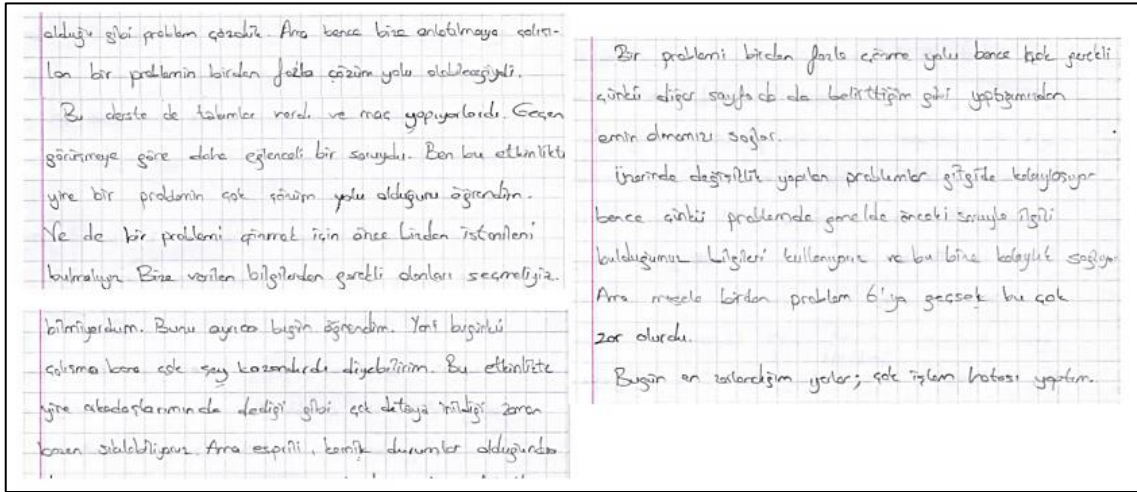 olduğu gibi problem çözdük. Ama bence bize anlatılmaya çalışı-
lan bir problemin birden fazla çözüm yolu olabileceğiydi.
Bu derste de takımlar vardı ve maç yapıyorlardı. Geçen
görüşmeye göre daha eğlenceli bir soruydu. Ben bu etkinlikte
yine bir problemin çok çözüm yolu olduğunu öğrendim.
Ya da bir problemi çözmek için önce bizden istenileni
bulmalıyız. Bize verilen bilgilerden gerekli olanları seçmeliyiz.
bilmiyordum. Bunu ayrıca bugün öğrendim. Yani bugünkü
çalışma bana çok şey kazandırdı diyebilirim. Bu etkinlikte
yine arkadaşlarımın da dediği gibi çok detaya inildiği zaman
bazen sıkılabiliyoruz. Ama esprili, komik durumlar olduğundan
Bir problemi birden fazla çözme yolu bence çok gerekli
çünkü diğer sayfada da belirttiğim gibi yaptığımızdan
emin olmamızı sağlar.
Üzerinde değişiklik yapılan problemler gitgide kolaylaşıyor
bence çünkü problemde genelde önceki soruyla ilgili
bulduğumuz bilgileri kullanıyoruz ve bu bize kolaylık sağlıyor.
Ama mesela birden problem 6'ya geçsek bu çok
zor olurdu.
Bugün en zorlandığım yerler; çok işlem hatası yaptım.